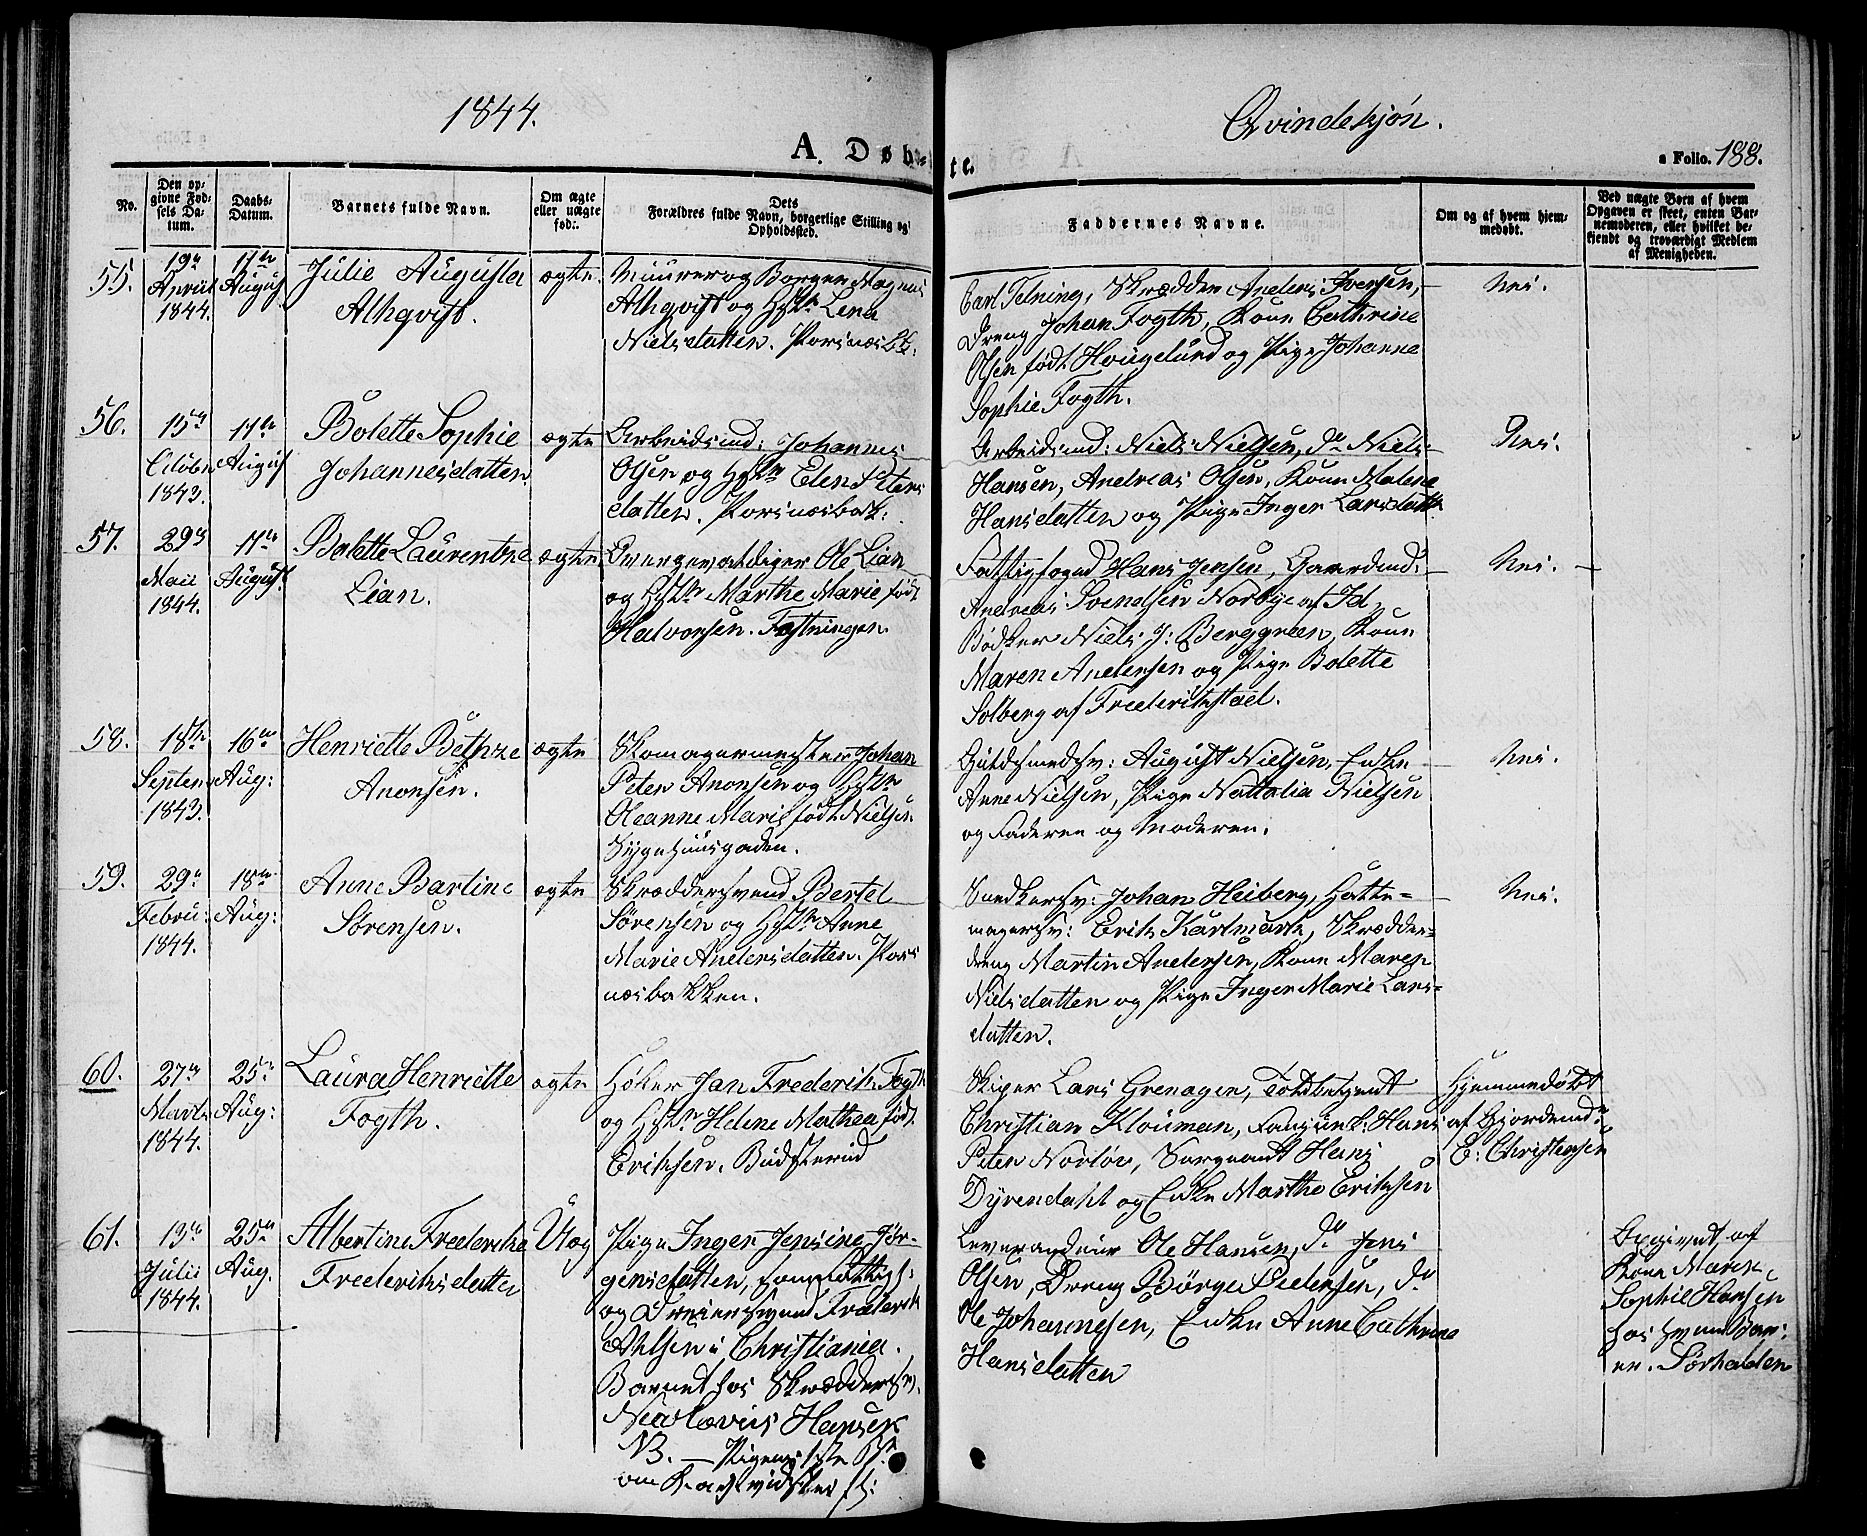 1844.
Qvindekjøn.
A. Døb-
te.
a Folio. 188.
No.
Den op-
givne Fød-
sels Da-
tum.
Daabs-
Datum.
Barnets fulde Navn.
Om ægte
eller uægte
fød.
Dets
Forældres fulde Navn, borgerlige Stilling og
Opholdssted.
Faddernes Navne.
Om og af hvem hjem-
medøbt.
Ved uægte Børn af hvem
Opgaven er skeet, enten Bar-
nemoderen, eller hvilket be-
kjendt og troværdigt Medlem
af Menigheden.
55.
19de
April
1844.
11te
August
Julie Augusta
Alhqvist.
ægte.
Muurer og Borger Magnus
Alhqvist og Hstr Lena
Nielsdatter. Porsnæsbk.
Carl Telning, Skrædder Anders Iversen,
Dreng Johan Fogth, Kone Cathrine
Olsen født Hougelund og Pige Johanne
Sophie Fogth.
Nei.
56.
15de
Octobr
1843.
11te
August
Bolette Sophie
Johannesdatter.
ægte
Arbeidsmd: Johannes
Olsen og Hstr Elen Peters
datter. Porsnæsbak:
Arbeidsmd: Niels Nielsen, do Niels
Hansen, Andreas Olsen, Kone Malene
Hansdatter og Pige Inger Larsdatter
Nei.
57.
29de
Maii
1844.
11te
August.
Bolette Laurentze
Lian.
ægte
Ole Lian
og Hstr Marthe Marie født
Halvorsen. Fæstningen.
Fattigfogd Hans Jensen, Gaardmd:
Andreas Svendsen Norbye af Id,
Bødker Niels J: Berggreen, Kone
Maren Andersen og Pige Bolette
Solberg af Frederikstad.
Nei.
58.
18de
Septem
1843.
16de
Aug:
Henriette Bethze
Anonsen.
ægte
Skomagermester Johan
Peter Anonsen og Hstr
Oleanne Marie født Nielsen.
Sygehuusgaden.
Guldsmedsv: August Nielsen, Enke
Anne Nielsen, Pige Nathalia Nielsen
og Faderen og Moderen.
Nei.
59.
29de
Febru:
1844.
18de
Aug:
Anne Bartine
Sørensen.
ægte
Skræddersvend Bertel
Sørensen og Hstr Anne
Marie Andersdatter. Pors
næsbakken.
Snedkersv: Johan Heiberg, Hatte-
magersv: Erik Karlmark, Skrædder-
dreng Martin Andersen, Kone Maren
Nielsdatter og Pige Inger Marie Lars-
datter.
Nei.
60.
27de
Marts
1844.
25de
Aug:
Laura Henriette
Fogth.
ægte
Høker Jan Frederik Fogth
og Hstr Helene Mathea født
Eriksen. Budsterud
Skiper Lars Grenagen, Toldbetjent
Christian Klouman, Hans
Peter Norløv, Sergeant Hans
Dyrendahl og Enke Marthe Eriksen
Hjemmedøbt
af Gjordemdr
E: Christensen
61.
13de
Julii
1844.
25de
Aug.
Albertine Fredrikke
Frederiksdatter
Uæg
Pige Inger Jensine Jør-
gensdatter,
og Dreiersvend Frederik
Ahlsen i Christiania.
Barnet hos Skræddersv.
Nicolævius Hansen
NB. – Pigens
Leverandeur Ole Hansen, do Jens
Olsen, Dreng Børge Pedersen, do
Ole Johannesen, Enke Anne Cathrine
Hansdatter
Opgivet af
Kone Maren
Sophie Hansen
hos hvem Bar:
er. Sørhalden